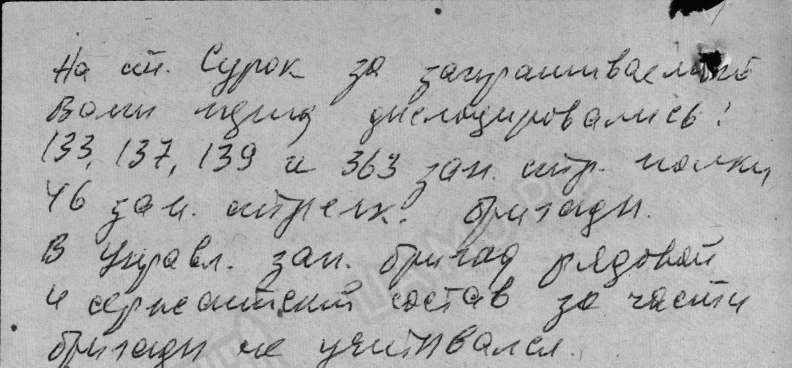 На ст. Сурок за запрашиваемый
Вами период дислоцировались:
133, 137, 139 и 363 зап. стр. полки,
46 зап. стрелк. бригады.
В Управл. зап. бригад рядовой
и сержантский состав за части
бригады не учитывался.